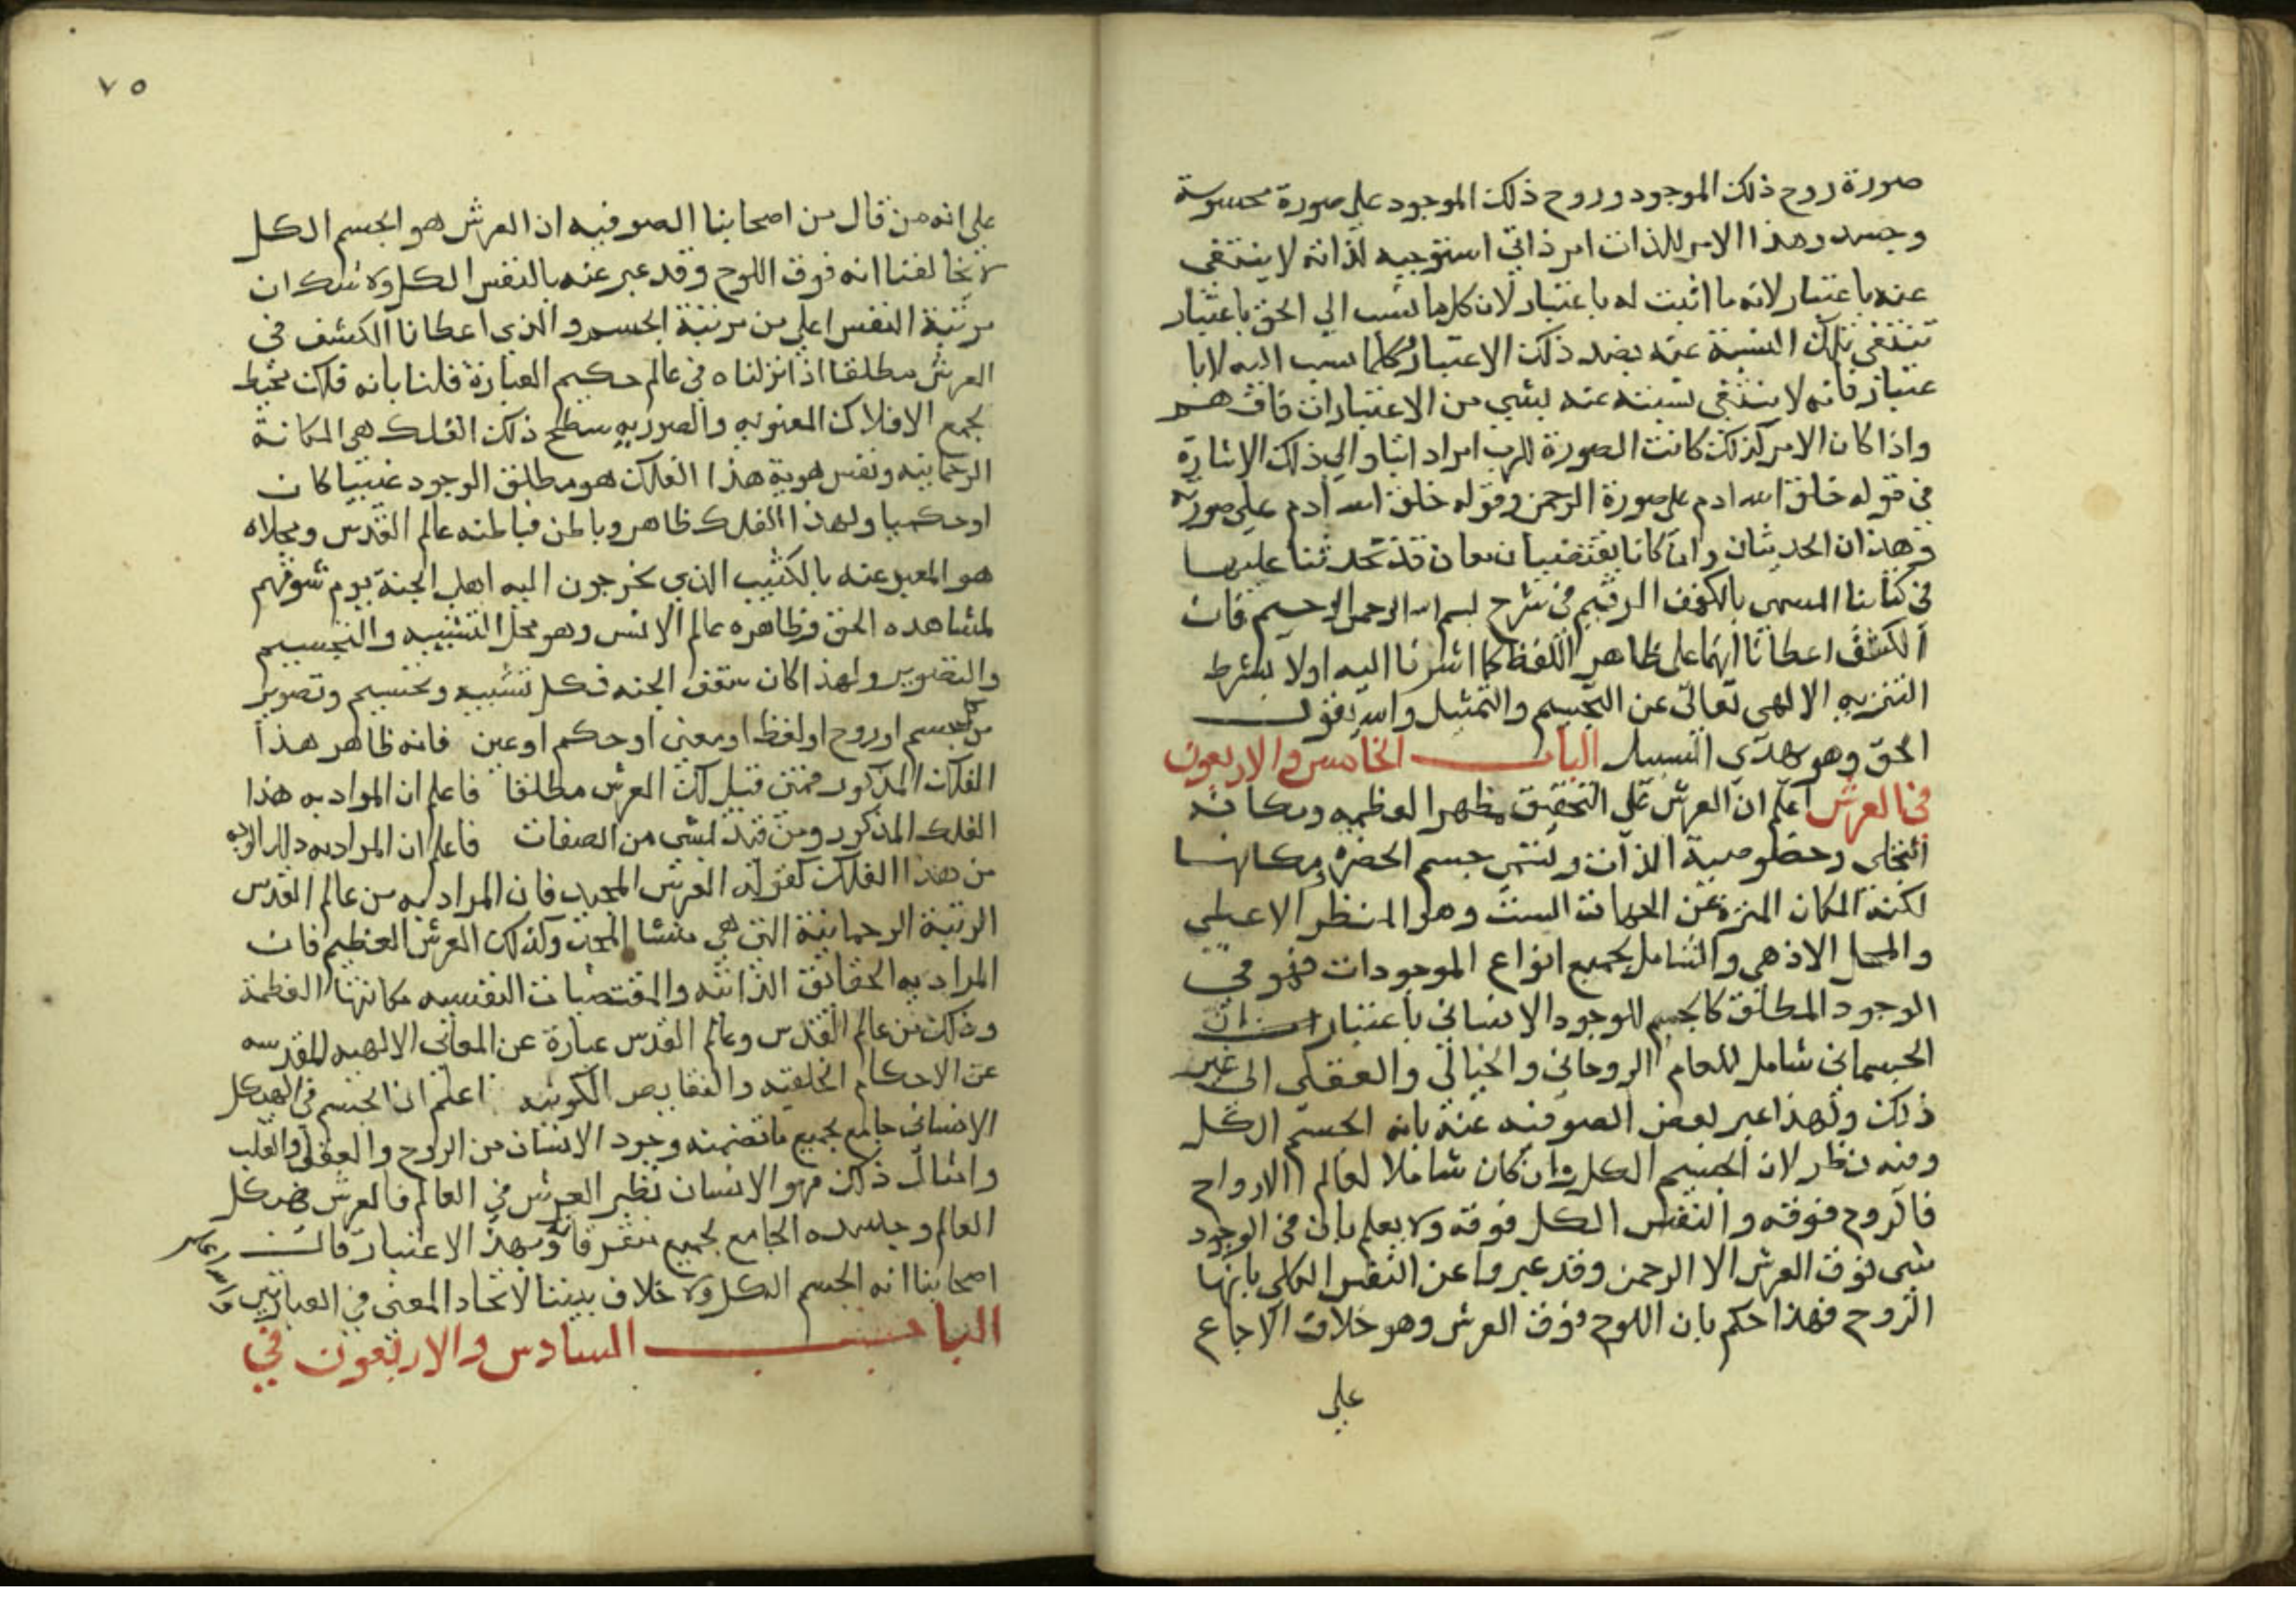 صورة روح ذلك الموجود وروح ذلك الموجود على صورة محسوسة
وجسده وهذا الامر للذات امر ذاتي استوجبه لذاته لا ينتفى
عنه باعتبار لانه ما اثبت له باعتبار لان كل ما نسب الي الحق باعتبار
تنتفى تلك النسبة عنه بضد ذلك الاعتبار وكلما نسب اليه لا با
عتبار فانه لا ينتفى نسبته عنه بشي من الاعتبارات فافهم
واذا كان الامر كذلك كانت الصورة للرب امراد اشار الي ذلك الاشارة
في قوله خلق الله ادم على صورة الرحمن وقوله خلق الله ادم على صورته
وهذان الحديثان وان كانا يقتضيان معان قد تحدثنا عليها
في كتابنا المسمى بالكهف الرقيم في شرح بسم الله الرحمن الرحيم فان
الكشف اعطانا انهما على ظاهر اللفظ كما اشرنا اليه اولا بشرط
التنزيه الالهي تعالى عن التجسيم والتمثيل والله يقول
الحق وهو يهدى السبيل الباب الخامس والاربعون
في العرش اعلم ان العرش على التحقيق مظهر العظمه ومكانه
التجلى وخصوصية الذات ويسمى جسم الحضرة ومكانها
لكنه المكان المنزه عن الجهات الست وهو المنظر الاعلى
والمحل الازهى والشامل لجميع انواع الموجودات فهو في
الوجود المطلق كالجسم للوجود الانساني باعتبار ان
الجسماني شامل للعالم الروحاني والخيالي والعقلى الى غير
ذلك ولهذا عبر بعض الصوفيه عنه بانه الجسم الكل
وفيه نظر لان الجسم الكل وان كان شاملا لعالم الارواح
فالروح فوقه والنفس الكل فوقه ولا يعلم بان في الوجود
شى فوق العرش الا الرحمن وقد عبروا عن النفس الكلى بانها
الروح فهذا حكم بان اللوح فوق العرش وهو خلاف الاجماع
على
٧٥
على انه من قال من اصحابنا الصوفيه ان العرش هو الجسم الكل
لا يخالفنا انه فوق اللوح وقد عبر عنه بالنفس الكل ولا شك ان
مرتبة النفس اعلى من مرتبة الجسم والذي اعطانا الكشف في
العرش مطلقا اذا نزلناه في عالم حكيم العبارة قلنا بانه فلك محيط
بجمع الافلاك المعنويه والصوريه سطح ذلك الفلك هى المكانة
الرحمانيه ونفس هوية هذا الفلك هو مطلق الوجود عينيا كان
او حكميا ولهذا الفلك ظاهر وباطن فباطنه عالم القدس ومجلاه
هو المعبر عنه بالكثيب الذي يخرجون اليه اهل الجنة يوم شوقهم
لمشاهده الحق وظاهره عالم الانس وهو محل التشبيه والتجسيم
والتصوير ولهذا كان سقف الجنه فكل تشبيه وتجسيم وتصوير
من كل جسم او روح او لفظ او معنى او حكم او عين فانه ظاهر هذا
الفلك المذكور فمتى قيل لك العرش مطلقا فاعلم ان المراد به هذا
الفلك المذكور ومتى قيد بشى من الصفات فاعلم ان المراد به ذلك الوجه
من هذا الفلك كقوله العرش المجيد فان المراد به من عالم القدس
الرتبة الرحمانية التى هي منشا المجد وكذلك العرش العظيم فان
المراد به الحقائق الذاتيه والمقتضيات النفسيه مكانتها العظمة
وذلك من عالم القدس وعالم القدس عبارة عن المعاني الالهيه المقدسه
عن الاحكام الخلقيه والنقايص الكونيه اعلم ان الجسم في الهيكل
الانساني جامع لجميع ما تضمنه وجود الانسان من الروح والعقل والقلب
وامثال ذلك فهو الانسان نظير العرش في العالم فالعرش هيكل
العالم وجسده الجامع لجميع متفرقاته وبهذا الاعتبار قالت
اصحابنا انه الجسم الكل ولا خلاف بيننا لاتحاد المعنى في العبارتين
الباب السادس والاربعون في